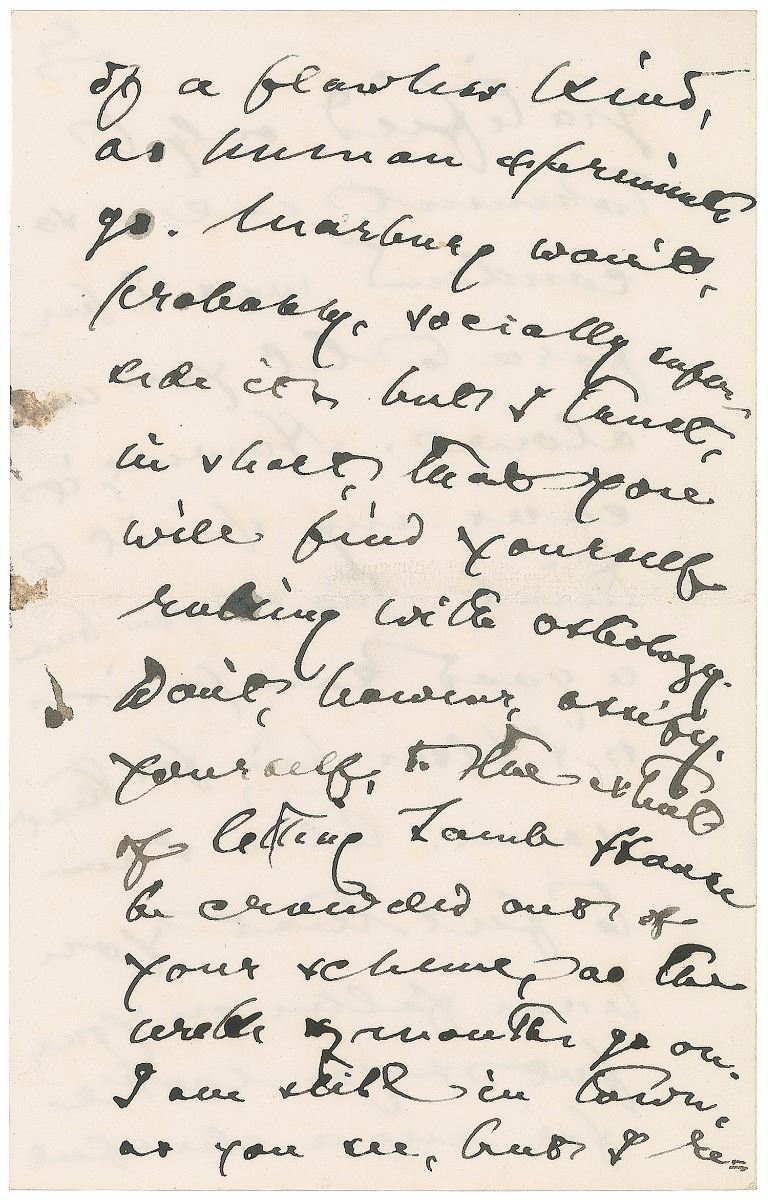 of a flawless kind,
as human experiments
go. Marburg won't,
probably, socially super-
sede it, but I trust,
in short, that you
will find yourself
with osteology.
Don't, however, ossify,
yourself, to the extent
of letting Lamb House
be crowded out of
your scheme, as the
weeks & months go on.
I am still in town,
as you see, but I re=